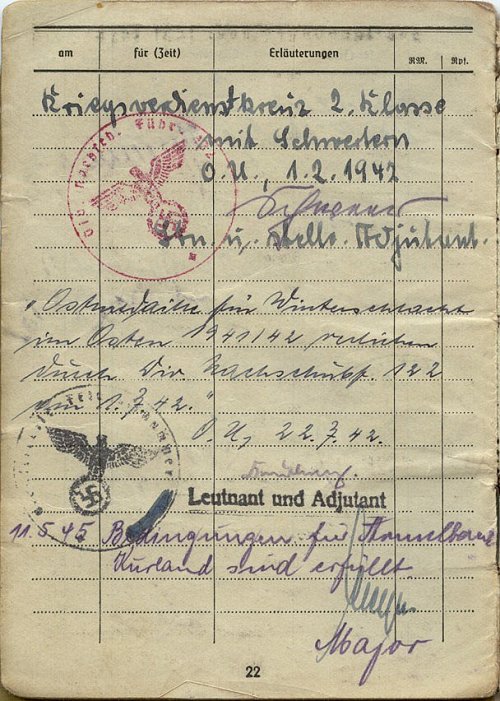 am für (Zeit) Erläuterungen RM. Rpf.
Kriegsverdienstkreuz 2. Klasse
mit Schwertern
O.U., 1.2.1942
Ltn. u. stellv. Adjutant.
"Ostmedaille für Winterschlacht
im Osten 1941/42 verliehen
durch Div. Nachschubf. 122
am 1.7.42."
O.U., 22.7.42.
Leutnant und Adjutant
11.5.45 Bedingungen für Ärmelband
Kurland sind erfüllt
Major
22